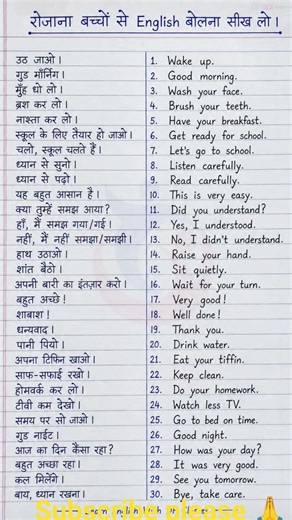 रोजाना बच्चों से English बोलना सीख लो।
उठ जाओ। 1. Wake up.
गुड मॉर्निंग। 2. Good morning.
मुँह धो लो। 3. Wash your face.
ब्रश कर लो। 4. Brush your teeth.
नाश्ता कर लो। 5. Have your breakfast.
स्कूल के लिए तैयार हो जाओ। 6. Get ready for school.
चलो, स्कूल चलते हैं। 7. Let's go to school.
ध्यान से सुनो। 8. Listen carefully.
ध्यान से पढ़ो। 9. Read carefully.
यह बहुत आसान है। 10. This is very easy.
क्या तुम्हें समझ आया? 11. Did you understand?
हाँ, मैं समझ गया/गई। 12. Yes, I understood.
नहीं, मैं नहीं समझा/समझी। 13. No, I didn't understand.
हाथ उठाओ। 14. Raise your hand.
शांत बैठो। 15. Sit quietly.
अपनी बारी का इंतज़ार करो। 16. Wait for your turn.
बहुत अच्छे! 17. Very good!
शाबाश! 18. Well done!
धन्यवाद। 19. Thank you.
पानी पियो। 20. Drink water.
अपना टिफिन खाओ। 21. Eat your tiffin.
साफ-सफाई रखो। 22. Keep clean.
होमवर्क कर लो। 23. Do your homework.
टीवी कम देखो। 24. Watch less TV.
समय पर सो जाओ। 25. Go to bed on time.
गुड नाईट। 26. Good night.
आज का दिन कैसा रहा? 27. How was your day?
बहुत अच्छा रहा। 28. It was very good.
कल मिलेंगे। 29. See you tomorrow.
बाय, ध्यान रखना। 30. Bye, take care.
Subscribe please